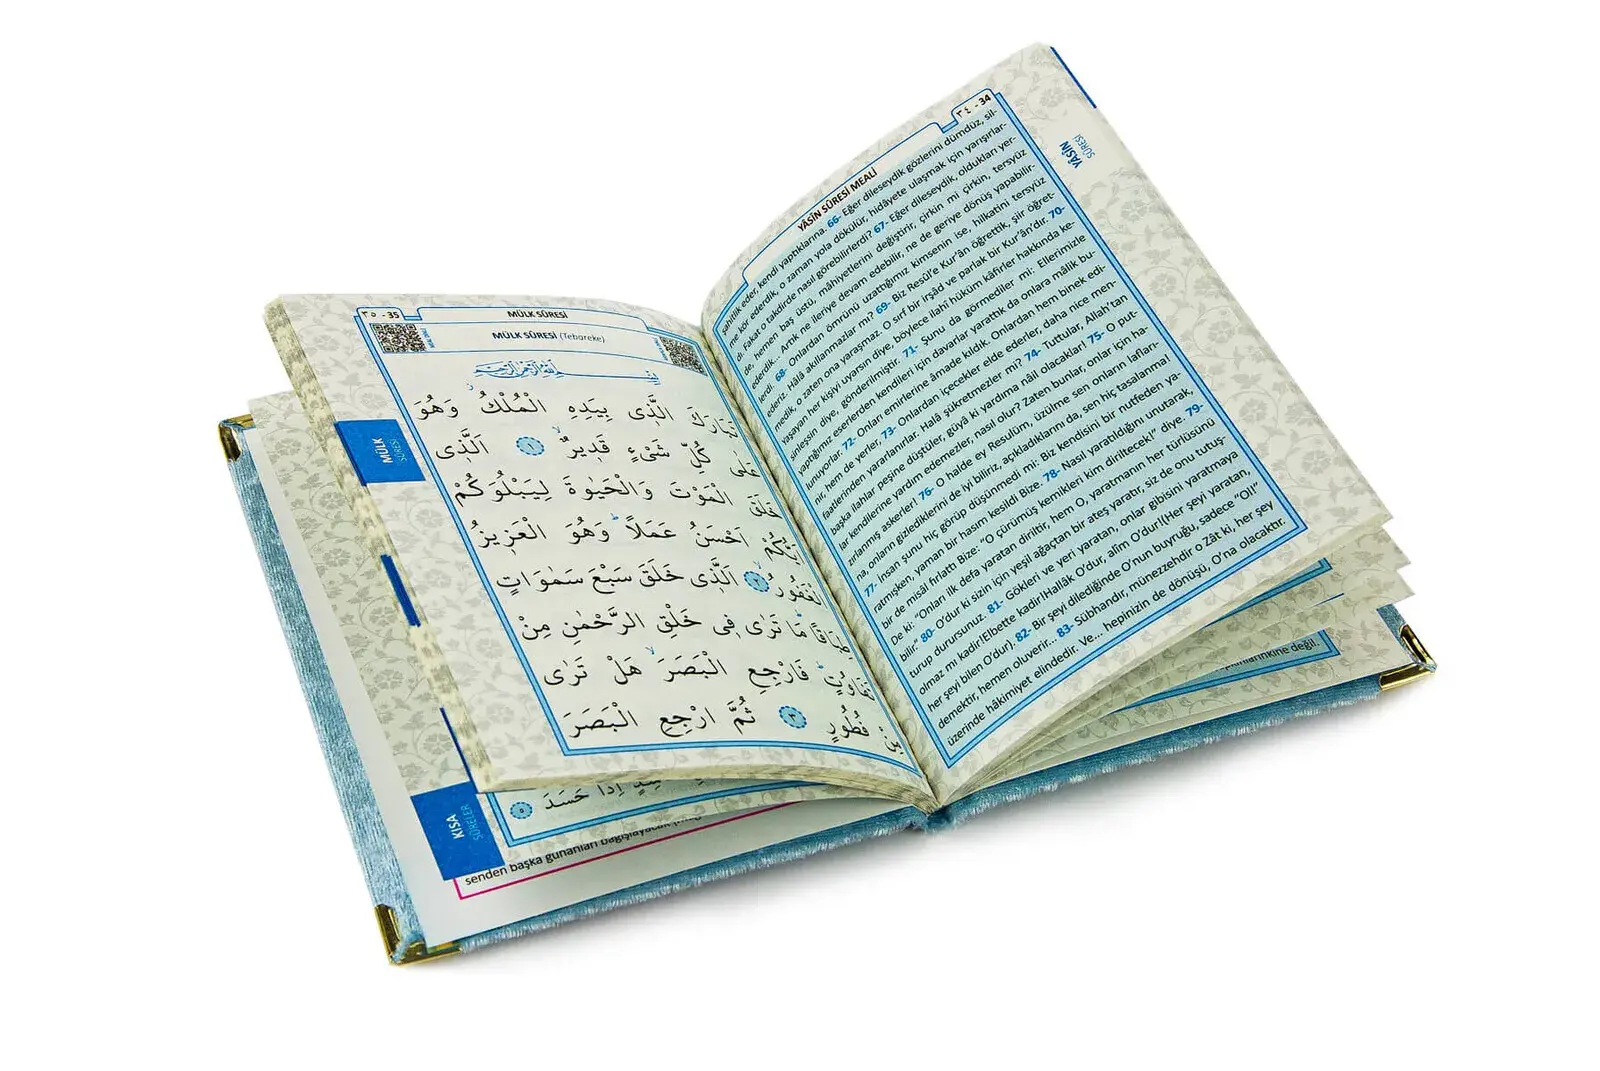 ٣٤ - 34
YÂSÎN SÛRESİ MEALİ
YÂSÎN
SÛRESİ
şahitlik eder, kendi yaptıklarına. 66- Eğer dileseydik gözlerini dümdüz, sil-
me kör ederdik, o zaman yola dökülür, hidâyete ulaşmak için yarışırlar-
dı. Fakat o takdirde nasıl görebilirlerdi? 67- Eğer dileseydik, oldukları yer-
de, hemen baş üstü, mâhiyetlerini değiştirir, çirkin mi çirkin, tersyüz
ederdik... Artık ne ileriye devam edebilir, ne de geriye dönüş yapabilir-
lerdi. 68- Onlardan ömrünü uzattığımız kimsenin ise, hilkatini tersyüz
ederiz. Hâlâ akıllanmazlar mı? 69- Biz Resûl'e Kur'ân öğrettik, şiir öğret-
medik, o zaten ona yaraşmaz. O sırf bir irşâd ve parlak bir Kur'ân'dır. 70-
yaşayan her kişiyi uyarsın diye, böylece ilahî hüküm kâfirler hakkında ke-
sinleşsin diye, gönderilmiştir. 71- Şunu da görmediler mi: Ellerimizle
yaptığımız eserlerden kendileri için davarlar yarattık da onlara mâlik bu-
lunuyorlar. 72- Onları emirlerine âmade kıldık. Onlardan hem binek edi-
nir, hem de yerler, 73- Onlardan içecekler elde ederler, daha nice men-
faatlerinden yararlanırlar. Halâ şükretmezler mi? 74- Tuttular, Allah'tan
başka ilahlar peşine düştüler, güyâ ki yardıma nâil olacaklar! 75- O put-
lar kendilerine yardım edemezler, nasıl olur? Zaten bunlar, onlar için ha-
zırlanmış askerler! 76- O halde ey Resulüm, üzülme sen onların lafları-
na, onların gizlediklerini de iyi biliriz, açıkladıklarını da, sen hiç tasalanma!
77- İnsan şunu hiç görüp düşünmedi mi: Biz kendisini bir nutfeden ya-
ratmışken, yaman bir hasım kesildi Bize. 78- Nasıl yaratıldığını unutarak,
bir de misâl fırlattı Bize: “O çürümüş kemikleri kim diriltecek!” diye. 79-
De ki: “Onları ilk defa yaratan diriltir, hem O, yaratmanın her türlüsünü
bilir.” 80- O'dur ki sizin için yeşil ağaçtan bir ateş yaratır, siz de onu tutuş-
turup durursunuz. 81- Gökleri ve yeri yaratan, onlar gibisini yaratmaya
olmaz mı kadir(Elbette kadir)Hallâk O'dur, alîm O'dur!(Her şeyi yaratan,
her şeyi bilen O'dur). 82- Bir şeyi dilediğinde O'nun buyruğu, sadece “Ol!”
demektir, hemen oluverir... 83- Sübhandır, münezzehdir o Zât ki, her şey
üzerinde hâkimiyet elindedir. Ve... hepinizin de dönüşü, O'na olacaktır.
değil!
٣٥ - 35
MÜLK SÛRESİ
MÜLK SÛRESİ (Tebareke)
بِسْمِ اللّٰهِ الرَّحْمٰنِ الرَّحِيمِ
تَبَارَكَ الَّذٖى بِيَدِهِ الْمُلْكُ وَهُوَ
عَلٰى كُلِّ شَىْءٍ قَدٖيرٌ ١ اَلَّذٖى
خَلَقَ الْمَوْتَ وَالْحَيٰوةَ لِيَبْلُوَكُمْ
اَيُّكُمْ اَحْسَنُ عَمَلًا وَهُوَ الْعَزٖيزُ
الْغَفُورُ ٢ اَلَّذٖى خَلَقَ سَبْعَ سَمٰوَاتٍ
طِبَاقًا مَا تَرٰى فٖى خَلْقِ الرَّحْمٰنِ مِنْ
تَفَاوُتٍ فَارْجِعِ الْبَصَرَ هَلْ تَرٰى
مِنْ فُطُورٍ ٣ ثُمَّ ارْجِعِ الْبَصَرَ
MÜLK
SÛRESİ
KISA
SÛRELER
اِذَا حَسَدَ ٥
senden başka günahları bağışlayacak